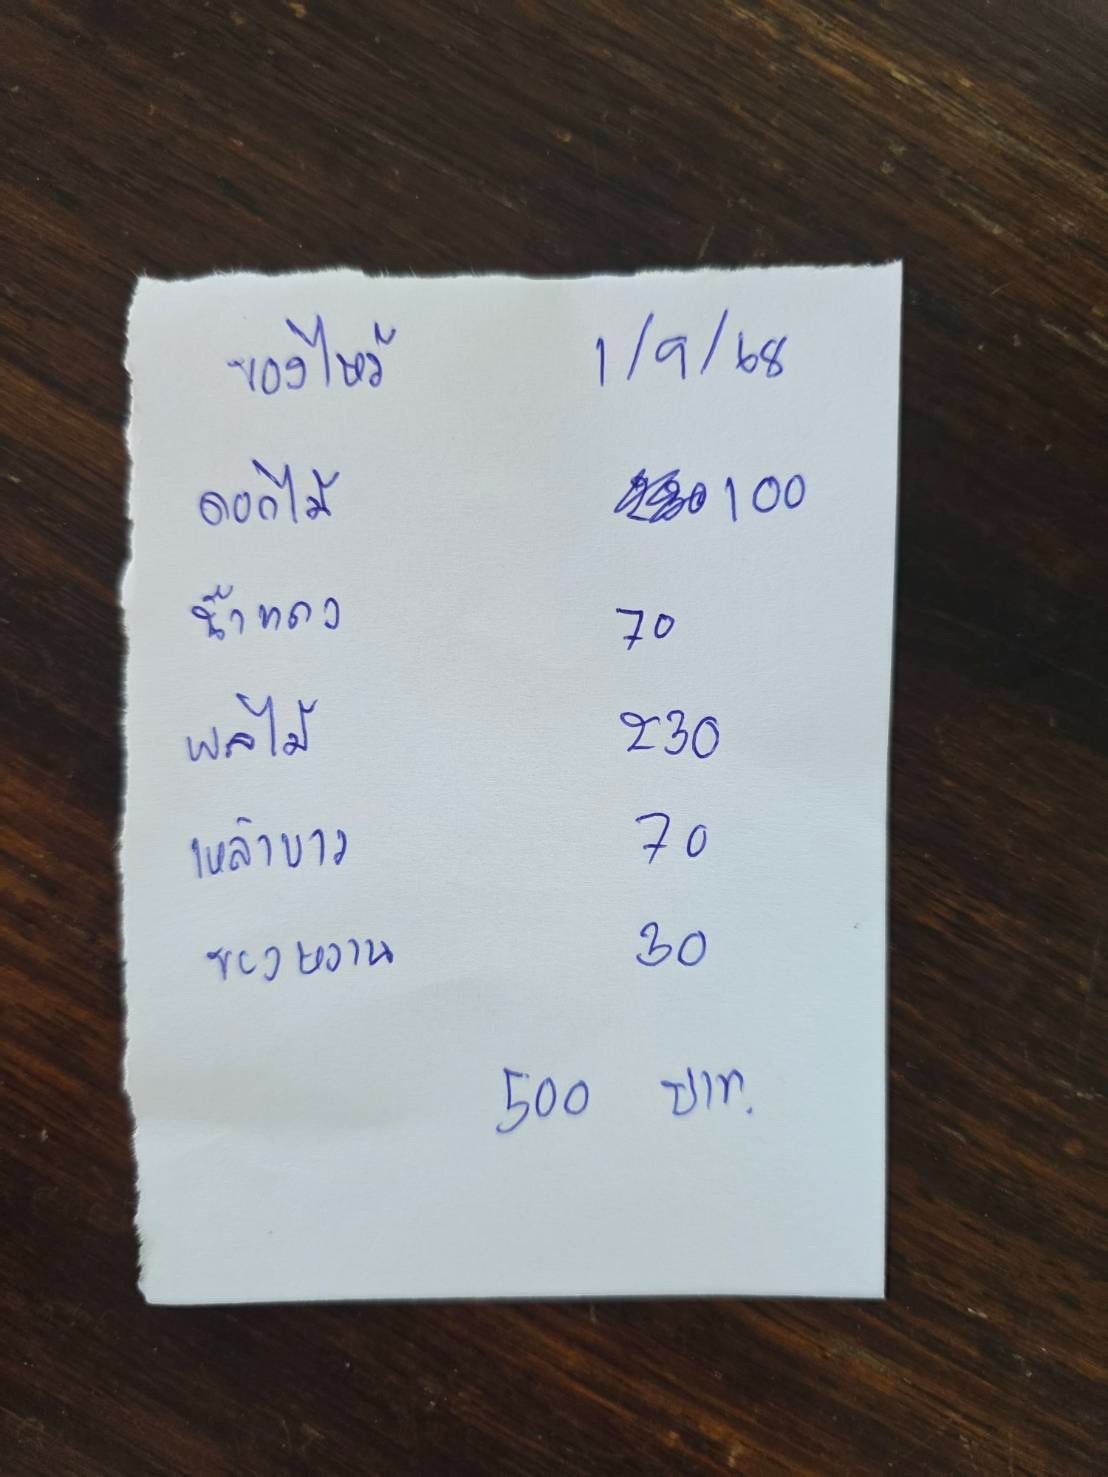 ของไหว้ 1/9/68
ดอกไม้ 100
น้ำแดง 70
ผลไม้ 230
เหล้าขาว 70
ของหวาน 30
500 บาท.